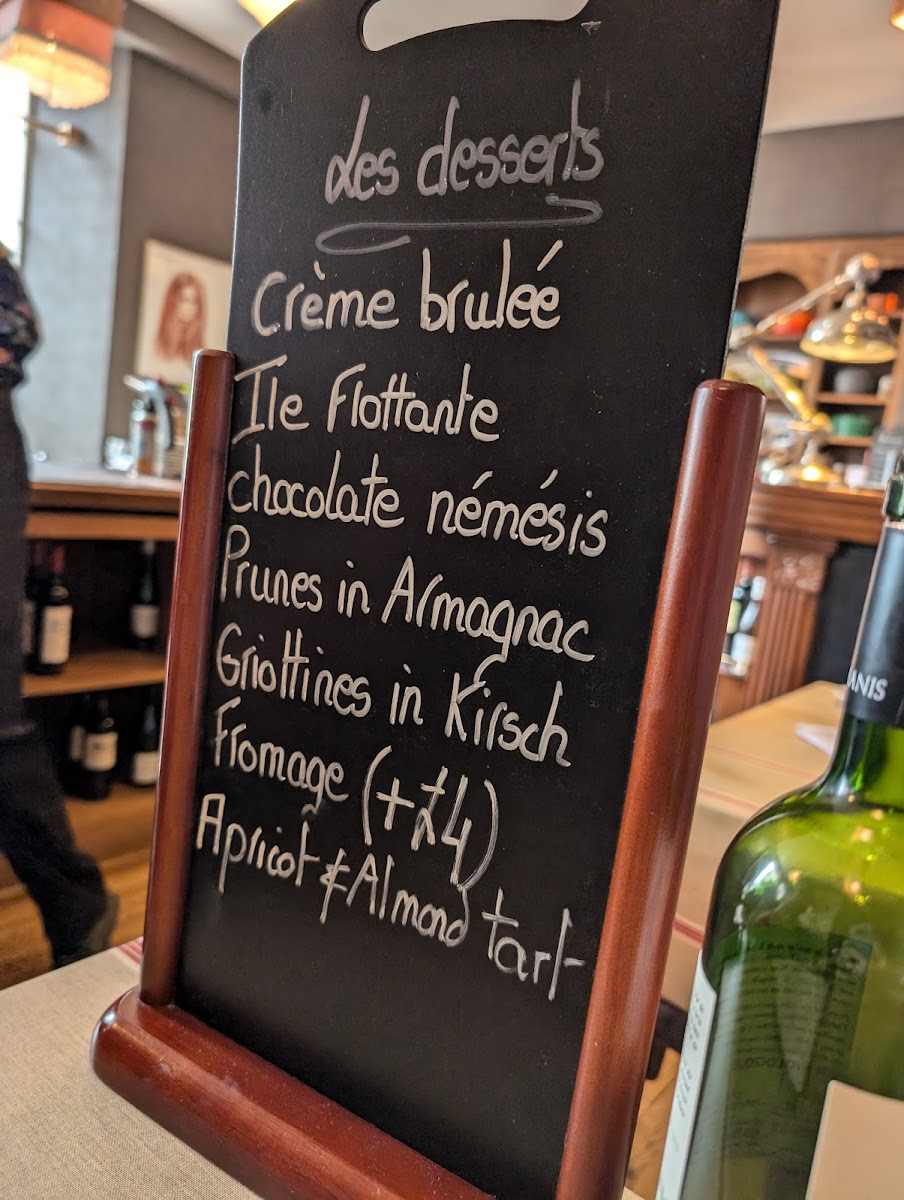 Les desserts
Crème brulée
Ile Flottante
chocolate némésis
Prunes in Armagnac
Griottines in Kirsch
Fromage (+£4)
Apricot & Almond tart
ANIS